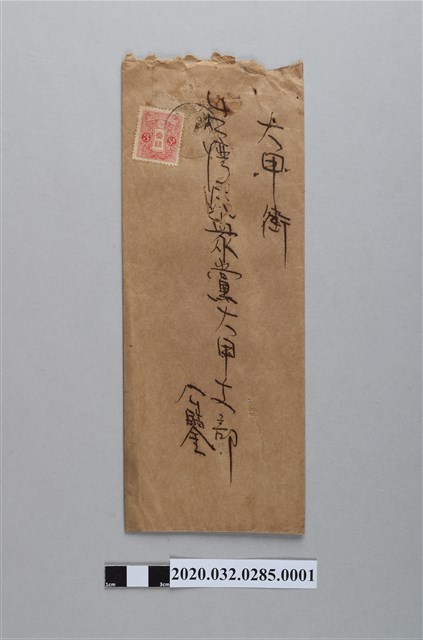 大甲街
台湾民衆黨大甲支部
公鑒
3 3
1cm 3cm
2020.032.0285.0001